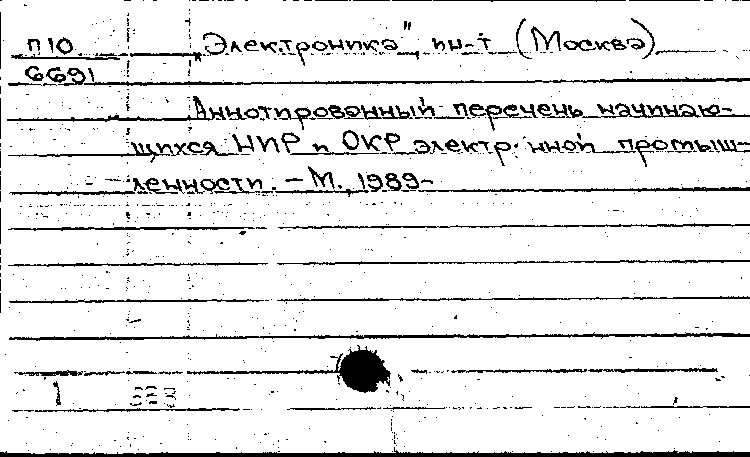 П10 „Электроника", ин-т (Москва)
6691
Аннотированный перечень начинаю-
щихся НИР и ОКР электр нной промыш-
ленности. – М., 1989-
1